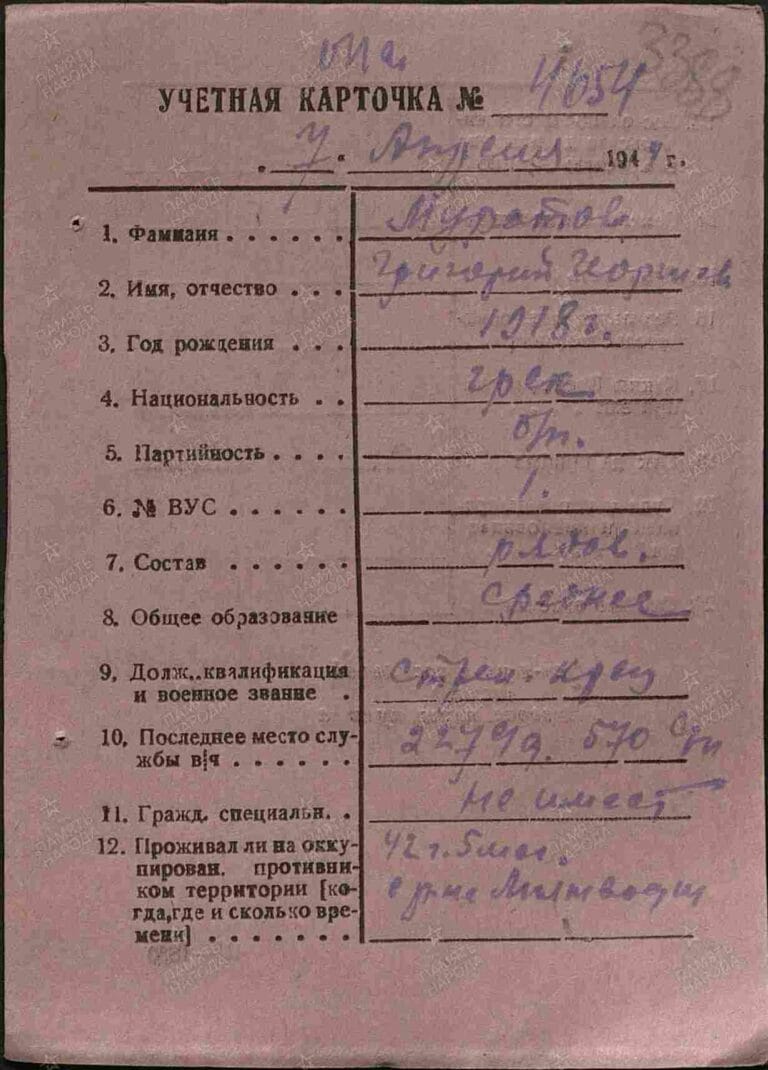 3399
УЧЕТНАЯ КАРТОЧКА № 4654
„7" Апреля 1944 г.
1. Фамилия . . . . . . Муротов
2. Имя, отчество . . . Григорий Георгиев
3. Год рождения . . . 1918 г.
4. Национальность . . грек
5. Партийность . . . . б/п.
6. № ВУС . . . . . . 1.
7. Состав . . . . . . рядов.
8. Общее образование среднее
9. Долж., квалификация стрел.
и военное звание .
10. Последнее место слу- 227 с/д. 570 с/п
жбы в|ч . . . . . .
11. Гражд. специальн. . не имеет
12. Проживал ли на окку- 42 г. 5 мес.
пирован. противни-
ком территории [ко-
гда,где и сколько вре-
мени] . . . . . . .
ПАМЯТЬ НАРОДА